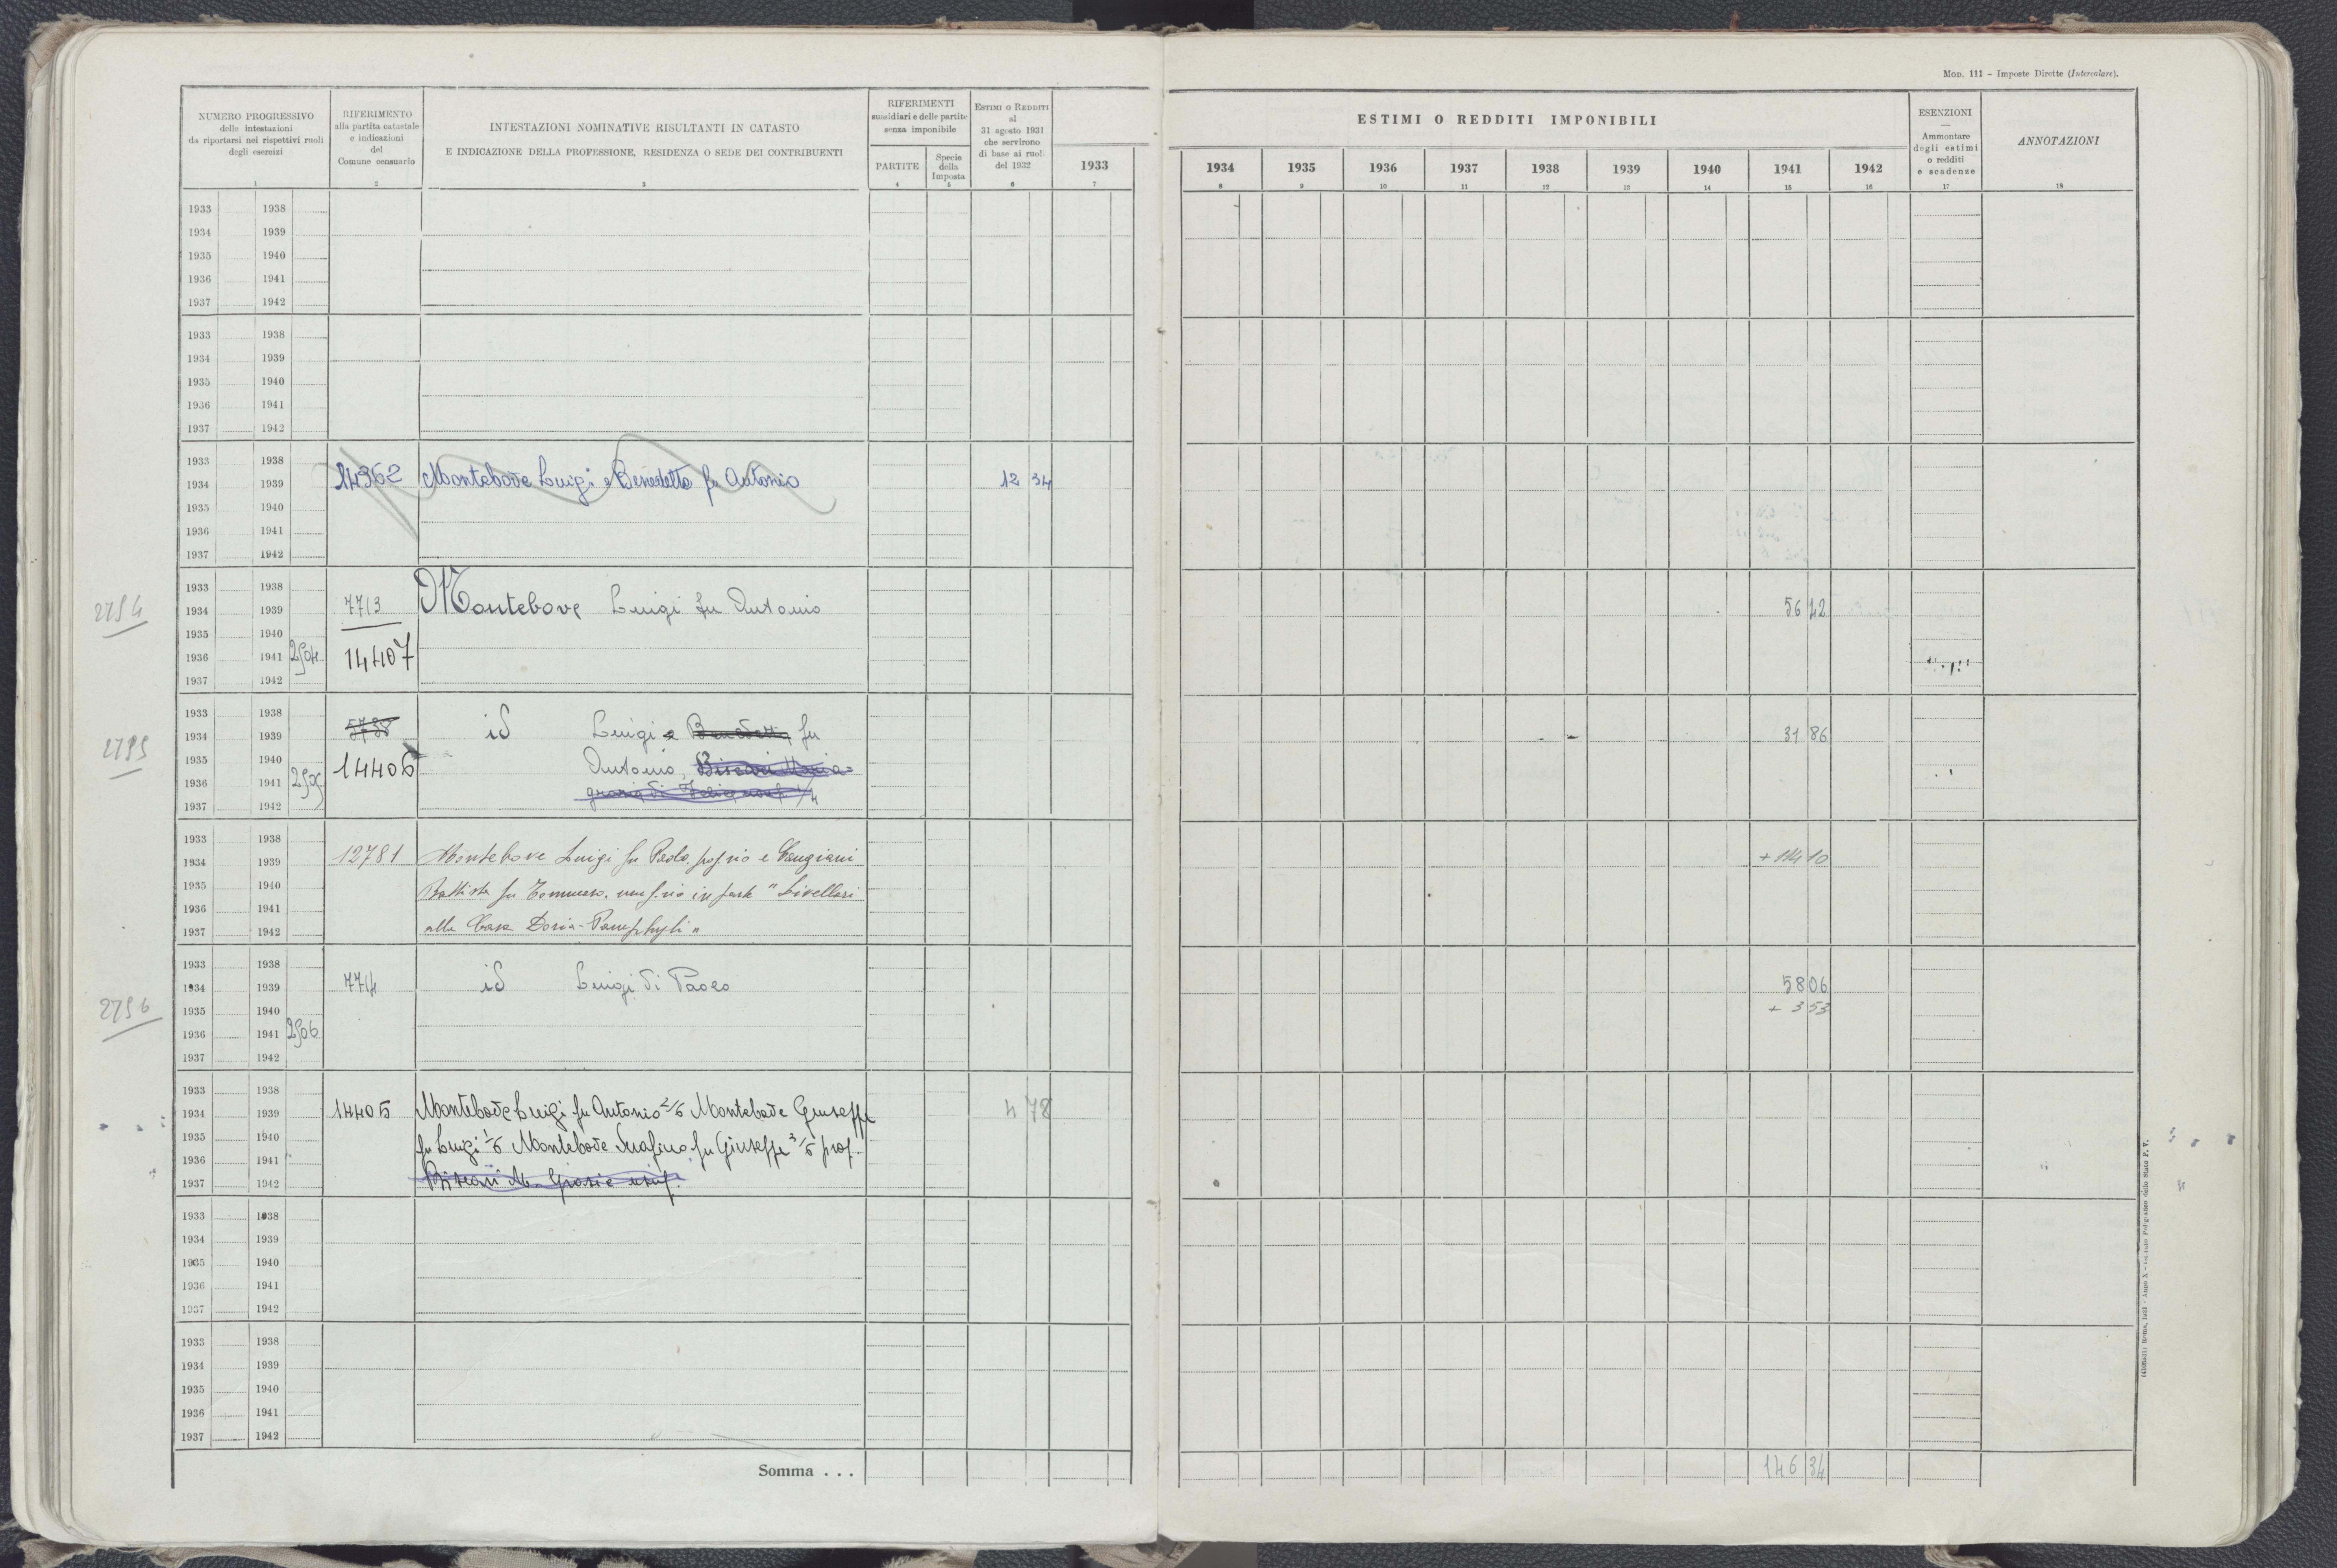 Mod. 111 - Imposte Dirette (Intercalare).
NUMERO PROGRESSIVO
delle intestazioni
da riportarsi nei rispettivi ruoli
degli esercizi
1
RIFERIMENTO
alla partita catastale
e indicazioni
del
Comune censuario
2
INTESTAZIONI NOMINATIVE RISULTANTI IN CATASTO
E INDICAZIONE DELLA PROFESSIONE, RESIDENZA O SEDE DEI CONTRIBUENTI
3
RIFERIMENTI
sussidiari e delle partite
senza imponibile
PARTITE
4
Specie
della
Imposta
5
ESTIMI O REDDITI
al
31 agosto 1931
che servirono
di base ai ruoli
del 1932
6
1933
7
ESTIMI O REDDITI IMPONIBILI
1934 1935 1936 1937 1938 1939 1940 1941 1942
8 9 10 11 12 13 14 15 16
ESENZIONI
—
Ammontare
degli estimi
o redditi
e scadenze
17
ANNOTAZIONI
18
1933 1938
1934 1939
1935 1940
1936 1941
1937 1942
1933 1938
1934 1939
1935 1940
1936 1941
1937 1942
1933 1938
1934 1939 14362 Montebove Luigi e Benedetto fu Antonio 12 34
1935 1940
1936 1941
1937 1942
1933 1938
2794 1934 1939 7713 Montebove Luigi fu Antonio 56 42
1935 1940
1936 1941 2504 14407
1937 1942
1933 1938
2795 1934 1939 5738 id Luigi e Benedetto fu 31 86
1935 1940 14406 Antonio
1936 1941 2505
1937 1942
1933 1938
1934 1939 12781 Montebove Luigi fu Paolo, e Cangiani + 114 10
1935 1940 Battista fu Tommaso. in parte "Livellari
1936 1941
1937 1942 alla Casa Doria-Pamphyli"
1933 1938
1934 1939 7714 id Luigi di Paolo 58 06
2796 1935 1940 + 3 53
1936 1941 2506
1937 1942
1933 1938
1934 1939 14405 Montebove Luigi fu Antonio 2/6 Montebove Giuseppe 4 78
1935 1940 fu Luigi 1/6 Montebove Serafino fu Giuseppe 3/6 prop.
1936 1941
1937 1942 Biscari M. Grazia usuf.
1933 1938
1934 1939
1935 1940
1936 1941
1937 1942
1933 1938
1934 1939
1935 1940
1936 1941
1937 1942
Somma . . . 146 34